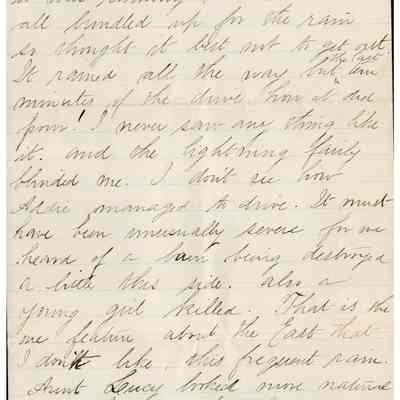 all bundled up for the rain
so thought it best not to get out.
It rained all the way but the last
minutes of the drive how it did
pour! I never saw any thing like
it. and the lightning fairly
blinded me. I don't see how
Addie managed to drive. It must
have been unusually severe for we
heard of a barn being destroyed
a little this side. also a
young girl killed. That is the
one feature about the East that
I don't like, this frequent rain.
Aunt Lucy looked more natural